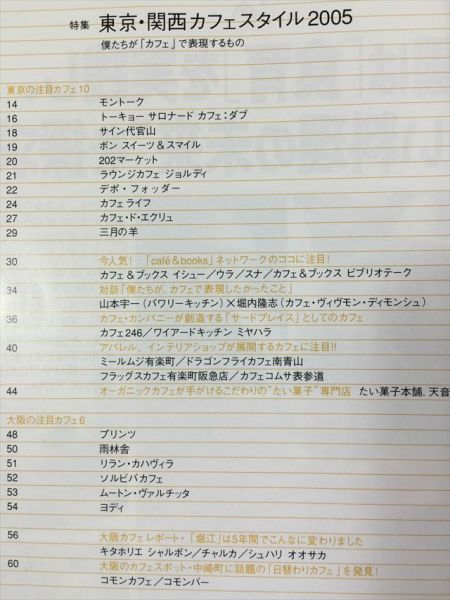 特集 東京・関西カフェスタイル2005
僕たちが「カフェ」で表現するもの
東京の注目カフェ10
14 モントーク
16 トーキョー サロナード カフェ:ダブ
18 サイン代官山
19 ボン スイーツ&スマイル
20 202マーケット
21 ラウンジカフェ ジョルディ
22 デポ・フォッダー
24 カフェ ライフ
27 カフェ・ド・エクリュ
29 三月の羊
30 今人気! 「café&books」ネットワークのココに注目!
カフェ&ブックス イシュー/ウラ/スナ/カフェ&ブックス ビブリオテーク
34 対談「僕たちが、カフェで表現したかったこと」
山本宇一(バワリーキッチン)×堀内隆志(カフェ・ヴィヴモン・ディモンシュ)
36 カフェ・カンパニーが創造する「サードプレイス」としてのカフェ
カフェ246/ワイアードキッチン ミヤハラ
40 アパレル、インテリアショップが展開するカフェに注目!!
ミールムジ有楽町/ドラゴンフライカフェ南青山
フラッグスカフェ有楽町阪急店/カフェコムサ表参道
44 オーガニックカフェが手がけるこだわりの"たい菓子"専門店 たい菓子本舗. 天音
大阪の注目カフェ6
48 プリンツ
50 雨林舎
51 リラン・カハヴィラ
52 ソルビバカフェ
53 ムートン・ヴァルチッタ
54 ヨディ
56 大阪カフェレポート・「堀江」は5年間でこんなに変わりました
キタホリエ シャルボン/チャルカ/シュハリ オオサカ
60 大阪のカフェスポット・中崎町に話題の「日替わりカフェ」を発見!
コモンカフェ/コモンバー